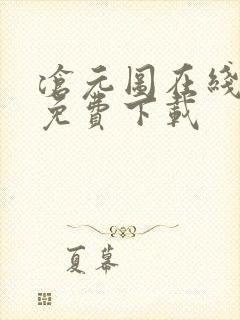 滄元圖在綫
免費下載
夏蓦